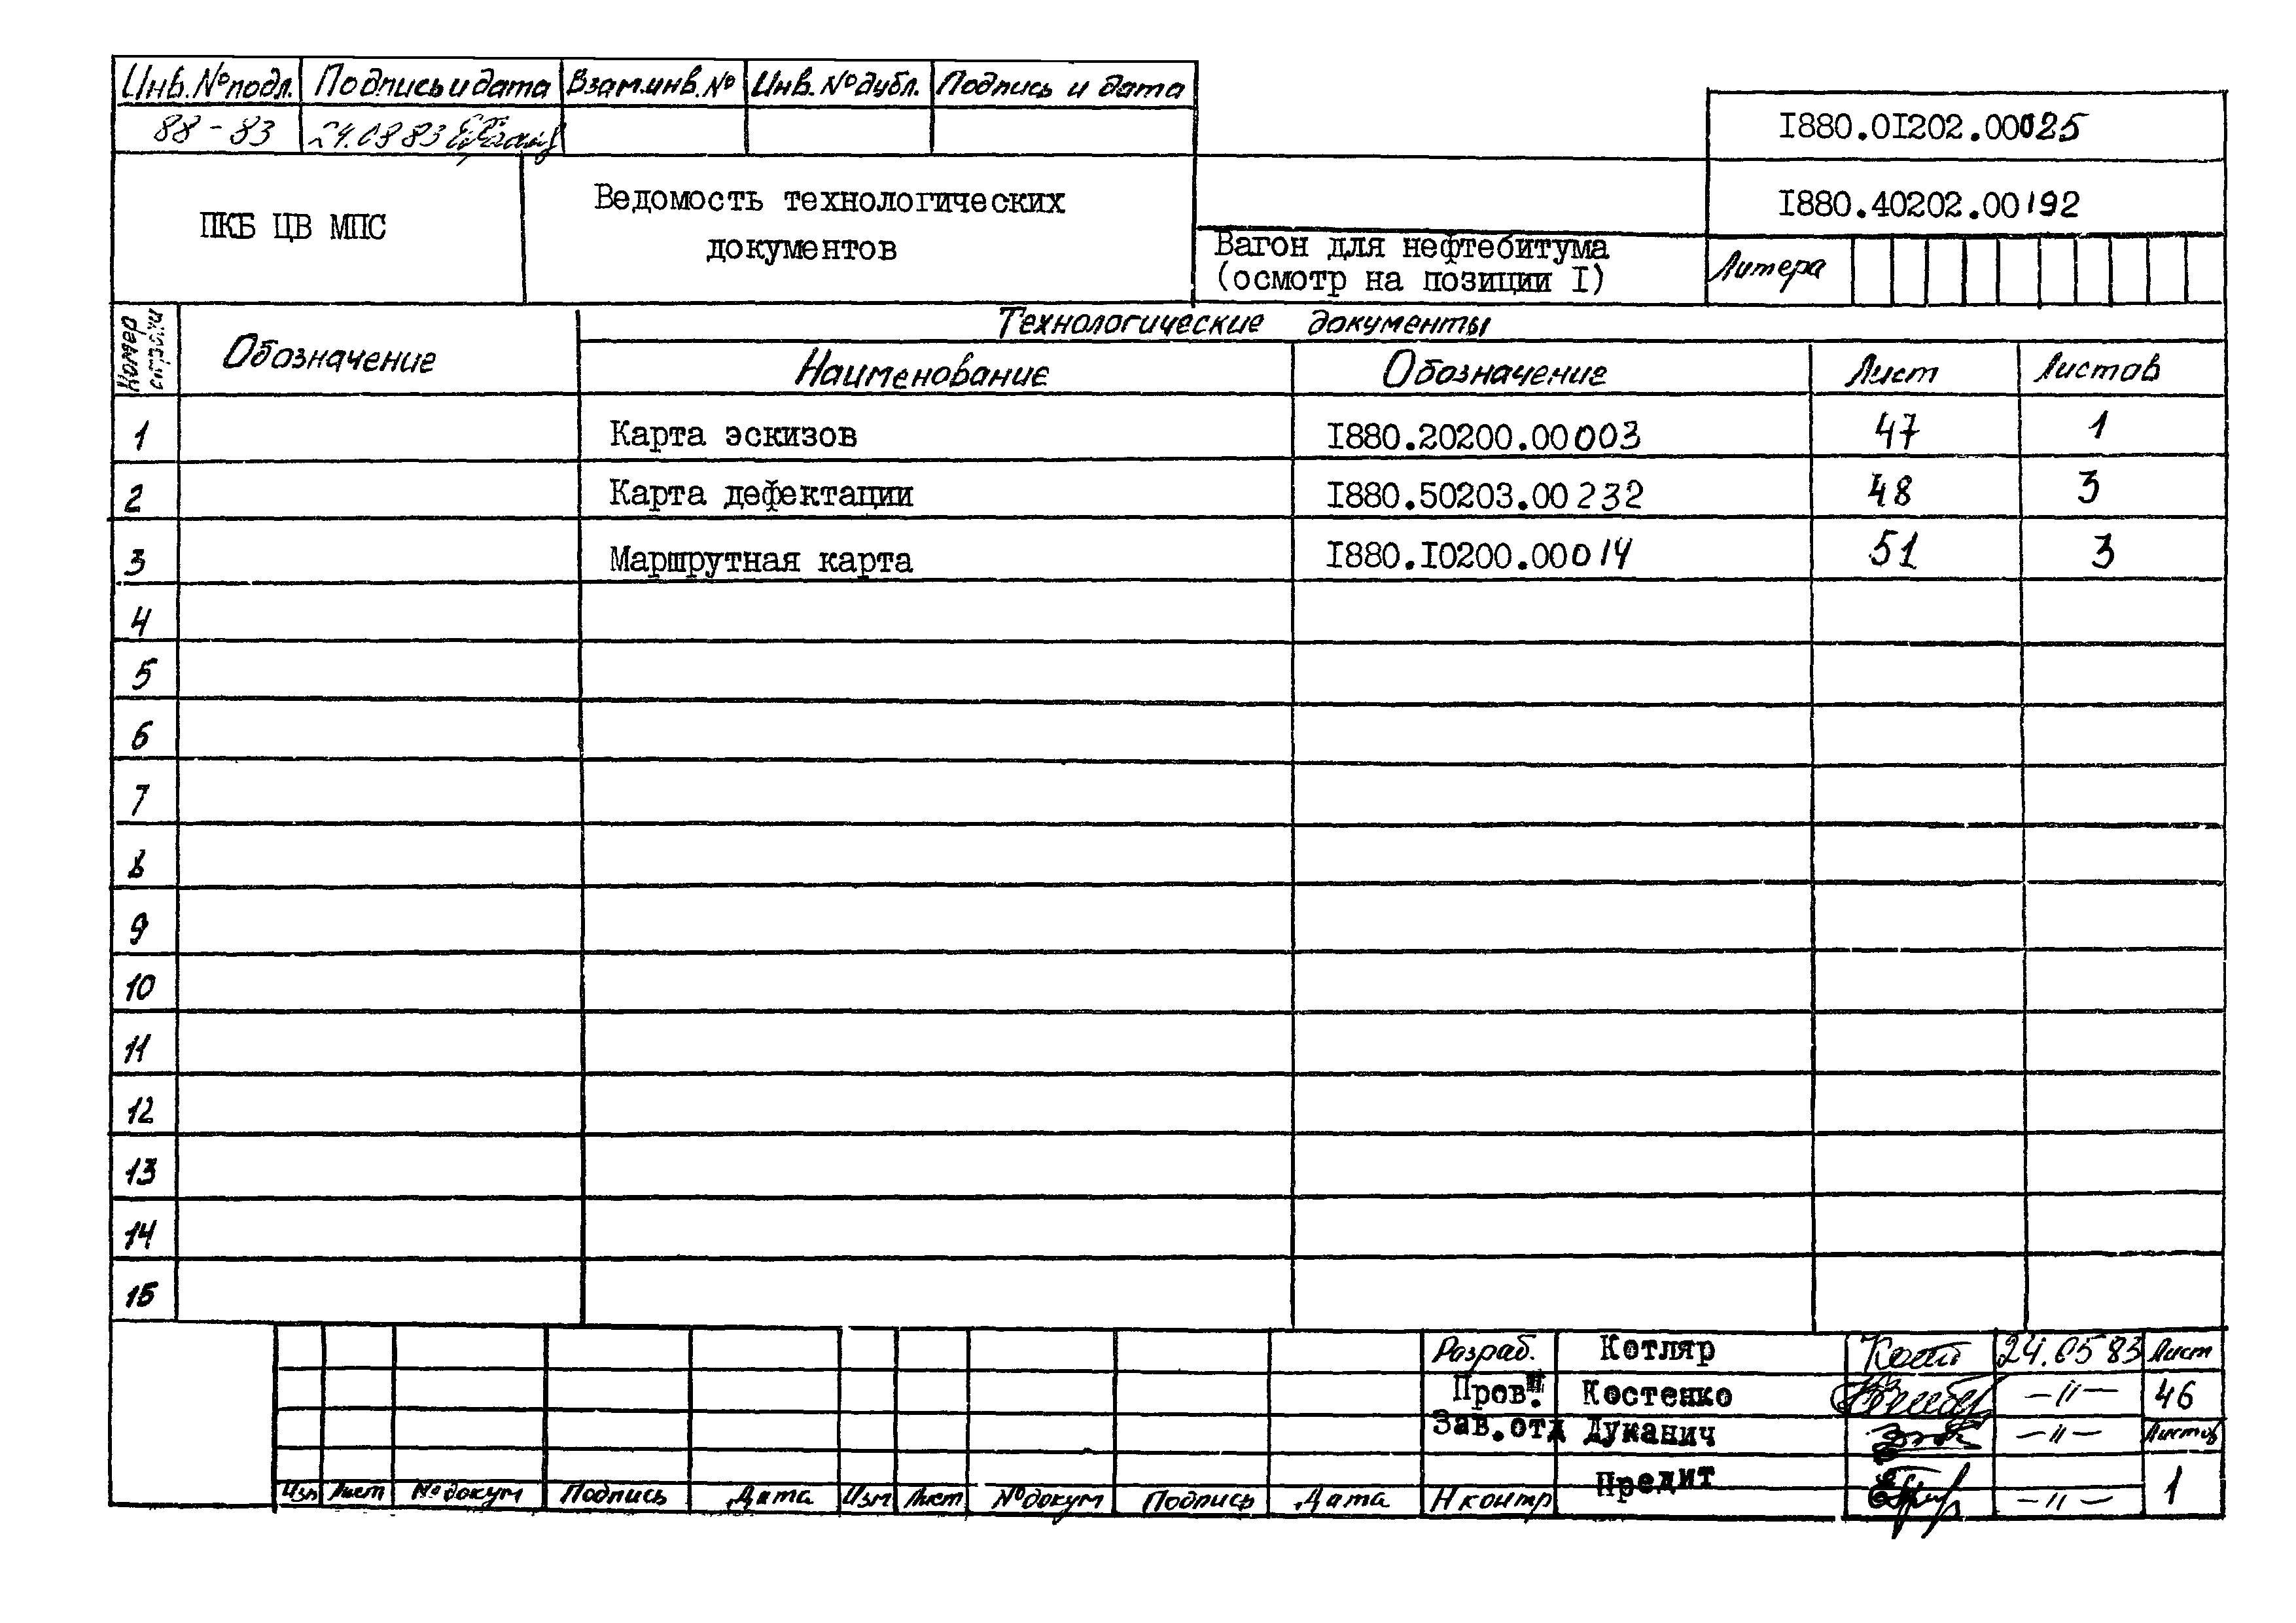 Инв.№подл. Подпись и дата Взам.инв.№ Инв.№дубл. Подпись и дата
88-83 24.08 83
I880.0I202.00025
ПКБ ЦВ МПС
Ведомость технологических
документов
I880.40202.00192
Вагон для нефтебитума
(осмотр на позиции I)
Литера
Номер строки
Обозначение
Технологические документы
Наименование Обозначение Лист Листов
1 Карта эскизов I880.20200.00003 47 1
2 Карта дефектации I880.50203.00232 48 3
3 Маршрутная карта I880.I0200.00014 51 3
4
5
6
7
8
9
10
11
12
13
14
15
Разраб. Котляр 24.05 83 Лист
Пров. Костенко —"— 46
Зав.отд Дуканич —"— Листов
Изм Лист №докум Подпись Дата Изм Лист №докум Подпись Дата Н контр Предит —"— 1